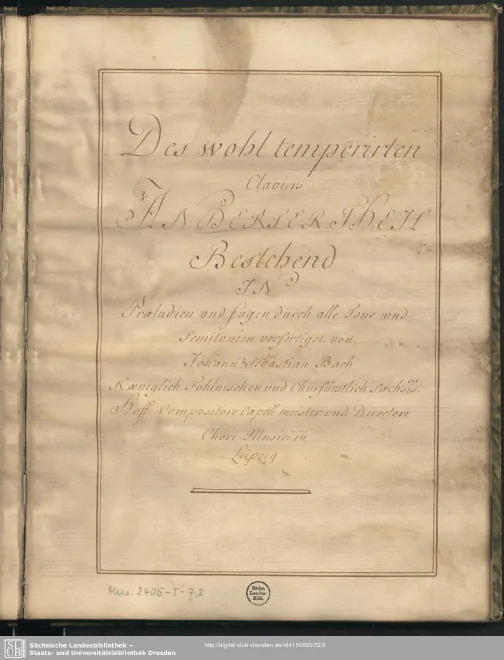 Des wohl temperirten
Claviers
ANDERER THEIL
Bestehend
IN
Præludien und fugen durch alle Tone und
Semitonien verfertiget von
Johann Sebastian Bach
Kœniglich Pohlnischen und Churfürstlich Sæchsis.
Hoff Compositore Capell meister und Directore
Chori Musici in
Leipzig
Mus. 2405-T-7,2
Sächs.
Landes
Bibl.
SLUB
Sächsische Landesbibliothek –
Staats- und Universitätsbibliothek Dresden
http://digital.slub-dresden.de/id419089972/3